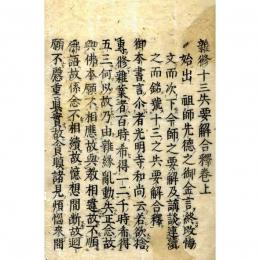 雜修十三失要解合釋卷上
始出 祖師先德之御金言終改悔
文而次下令師之要解及講談連
之而銘號十三之失要解合釋
御本書言尒者光明寺和尚云若欲捨
專修雜業者百時希得一二千時希得
五三何以故乃由雜緣亂動失正念故
與佛本願不相應故與教相違故不順
佛語故係念不相續故憶想間斷故迴
願不慇重真實故貪瞋諸見煩惱來間